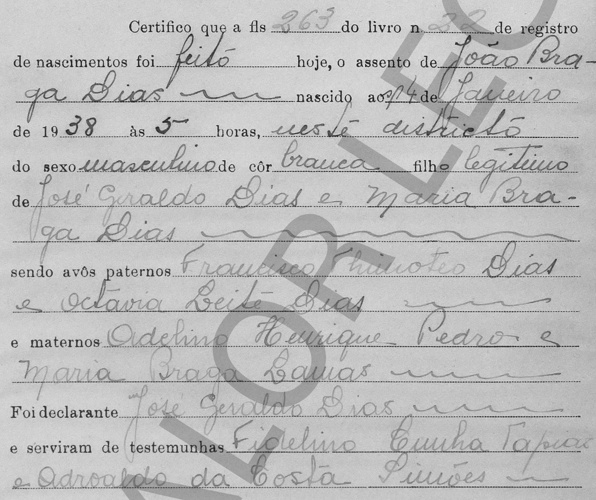 Certifico que a fls 263 do livro n. 22 de registro
de nascimentos foi feito hoje, o assento de João Bra-
ga Dias nascido aos 14 de Janeiro
de 1938 às 5 horas, neste districto
do sexo masculino de côr branca filho legitimo
de José Geraldo Dias e Maria Bra-
ga Dias
sendo avôs paternos Francisco Thimoteo Dias
e Octavia Leite Dias
e maternos Adelino Henrique Pedro e
Maria Braga Lamas
Foi declarante José Geraldo Dias
e serviram de testemunhas Fidelino Cunha
e Adroaldo da Costa Simões